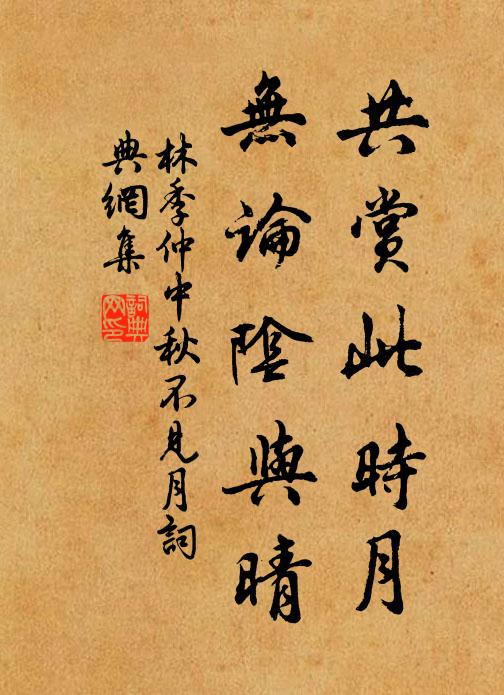 共賞此時月
無論陰與晴
林季仲中秋不見月詞
典網集
詞典
网印